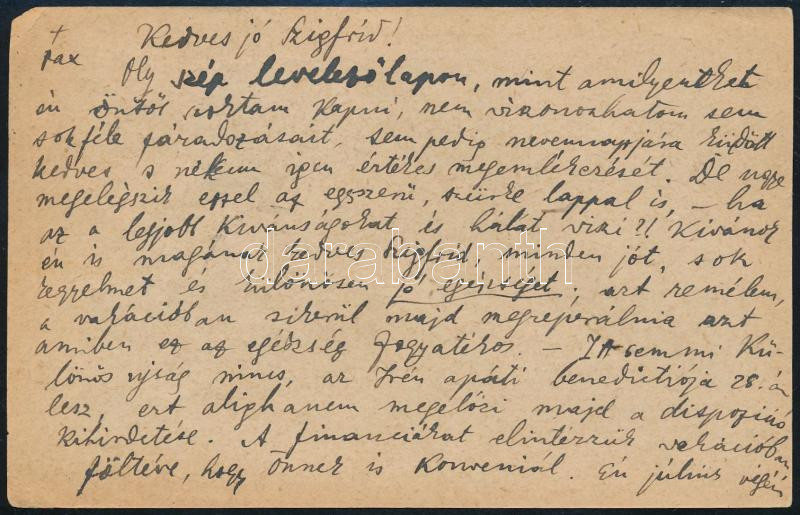 +
Pax
Kedves jó Szigfrid!
Oly szép levelezőlapon, mint amilyeneket
én Öntől szoktam kapni, nem viszonozhatom sem
sokféle fáradozásait, sem pedig nevemnapjára küldött
kedves s nékem igen értékes megemlékezését. De ugye
megelégszik ezzel az egyszerű, szürke lappal is, – ha
az a legjobb kívánságokat és hálát viszi?! Kívánok
én is magának kedves Szigfrid, minden jót, sok
kegyelmet és különösen jó egészséget; azt remélem,
a vakációban sikerül majd megreperálnia azt
amiben ez az egészség fogyatékos. – Itt semmi kü-
lönös ujság nincs, az Irén apáti benedictiója 28.-án
lesz, ezt alighanem megelőzi majd a dispozició
kihirdetése. A financiákat elintézzük vakációban
föltéve, hogy Önnek is konveniál. Én július végén
darabanth